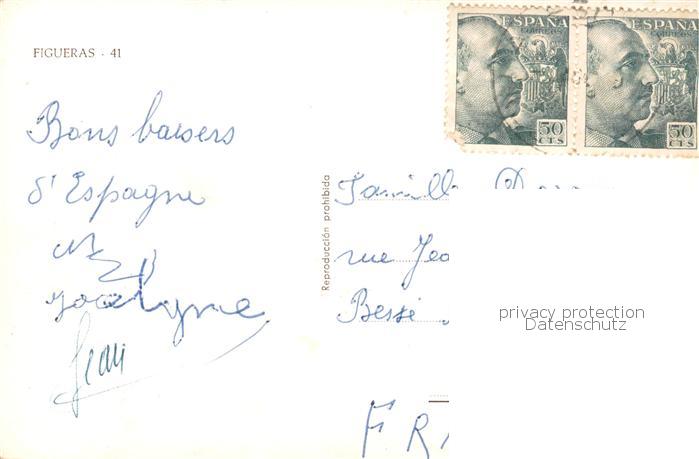 FIGUERAS - 41
ESPAÑA
CORREOS
50
CTS
ESPAÑA
CORREOS
50
CTS
Bons baisers
d'Espagne
Jocelyne
Jean
Reproducción prohibida
Famille
rue Jea
Bessé
FRA
privacy protection
Datenschutz